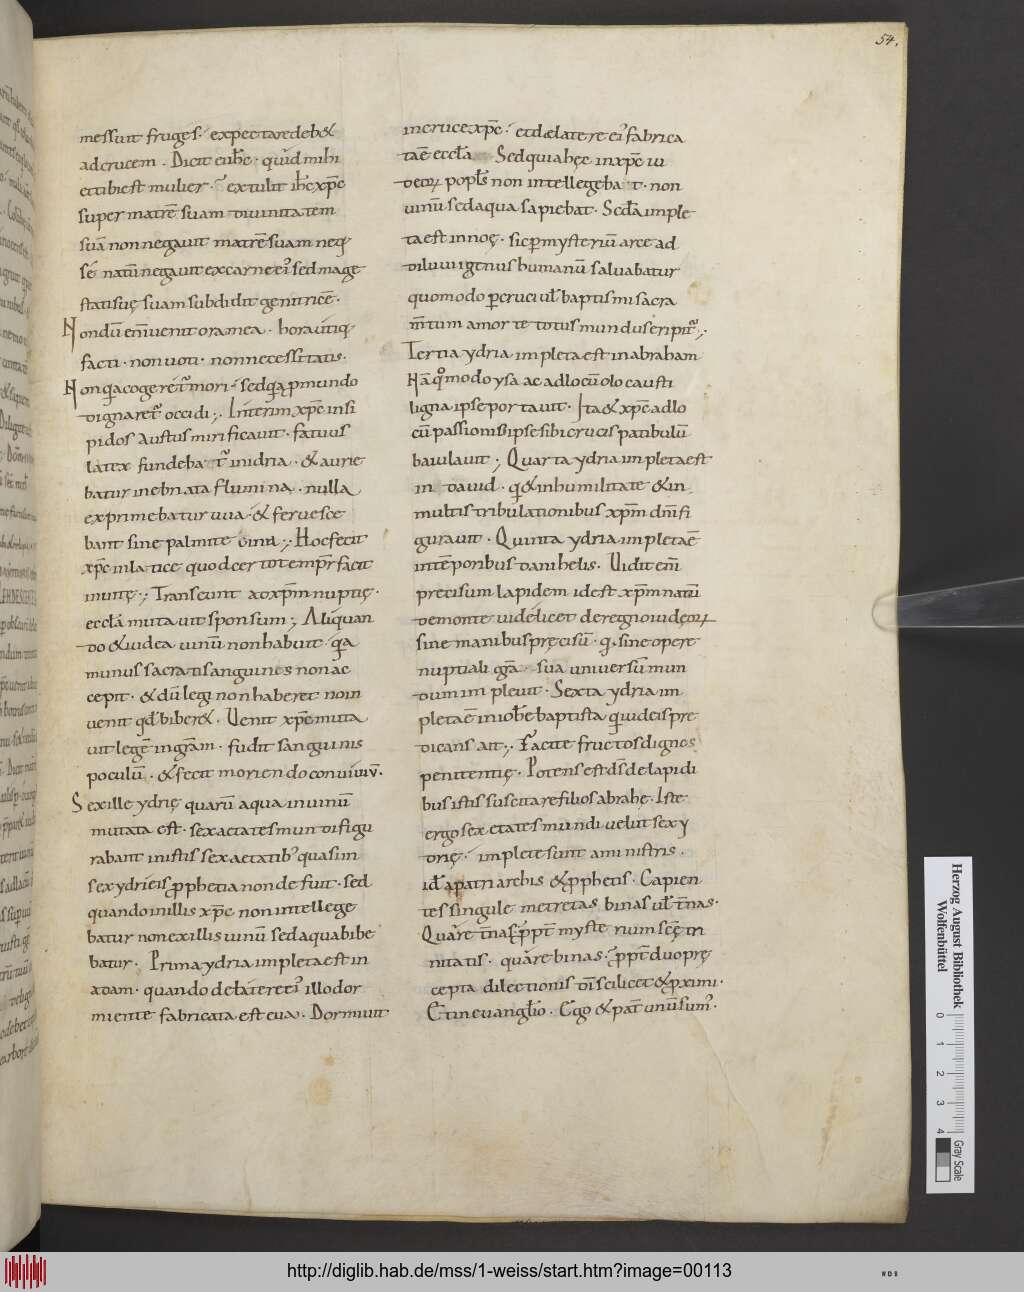 54.
messuit fruges· expectare deb&
ad crucem. Dicit ei ihc· quid mihi
et tibi est mulier· extulit ihc xpc
super matrē suam divinitatem
suā non negavit matrē suam neq;
se natū negavit ex carne ei' sed mage
statis suę suam subdidit genitricē·
Nondū enī venit ora mea· hora utiq;
facti· non voti· non necessitatis·
Non qa cogeret mori· sed q p mundo
dignaret occidi;. Interim xpc insi
pidos haustus mirificavit· fatuus
latex fundebat in idria· & aurie
batur inebriata flumina· nulla
exprimebatur uva· & fervesce
bant sine palmite vina;. Hoc fecit
xpc in latice quod cer tot tempr facit
in vite;. Transeunt ad xpm nuptię·
ecclā mutavit sponsum;. Aliquan
do & iudea vinū non habuit· qa
minus sacratis anguines non ac
cepit· & dū legi non haberet noin
venit qd biber&. Venit xpc muta
vit legē in grām· fudit sanguinis
poculū· & fecit moriendo convivium·
Sex ille ydrię quarū aqua in vinū
mutata est· sex aetates mundi figu
rabant in istis sex aetatib' quasi in
sex ydriis pphetia non defuit· sed
quando in illis xpc non intellege
batur non ex illis vinū sed aqua bibe
batur· Prima ydria impleta est in
adam· quando de latere ei' illo dor
miente fabricata est eva· Dormiuit
in cruce xpc· et de latere ei' fabrica
ta ē ecclā Sed quia hęc in xpc iu
deor popls non intellegebat· non
vinū sed aqua sapiebat· Sēda imple
ta est in noę· sic p mysteriū arce ad
diluvii genus humanū salvabatur
quomodo per crucī ul baptismi sacra
mtum amore totus mundus eripit;.
Tertia ydria impleta est in abraham
Nā qmodo ysaac ad locū olocausti
ligna ipse portavit· Ita & xpc ad lo
cū passionis ipse sibi crucis patibulū
baiulavit;. Quarta ydria impleta est
in david· q & in humilitate & in
multis tribulationibus xpm dnm fi
guravit· Quinta ydria impleta ē
in tēporibus danihelis· Vidit enī
precisum lapidem id est xpm natū
de monte videlicet de regno iudęor
sine manibus pręcisū· q sine opere
nuptiali grā sua universū mun
dum implevit· Sexta ydria im
pleta ē in iohe baptista q iudeis pre
dicans ait;. Facite fructos dignos
penitentię· Potens est ds de lapidi
bus istis suscitare filios abrahę· Iste
ergo sex etates mundi velut sex y
drię· implete sunt a ministris·
id a patriarchis & pphetis· Capien
tes singule metretas binas ul tnas·
Quare tnas ppt mysterium sce tri
nitatis· quare binas· ppt duo prę
cepta dilectionis di scilicet & pximi·
Et in evanglio· Ego & pat unū sum'·
Herzog August Bibliothek
Wolfenbüttel
0 1 2 3 4
Gray Scale
http://diglib.hab.de/mss/1-weiss/start.htm?image=00113